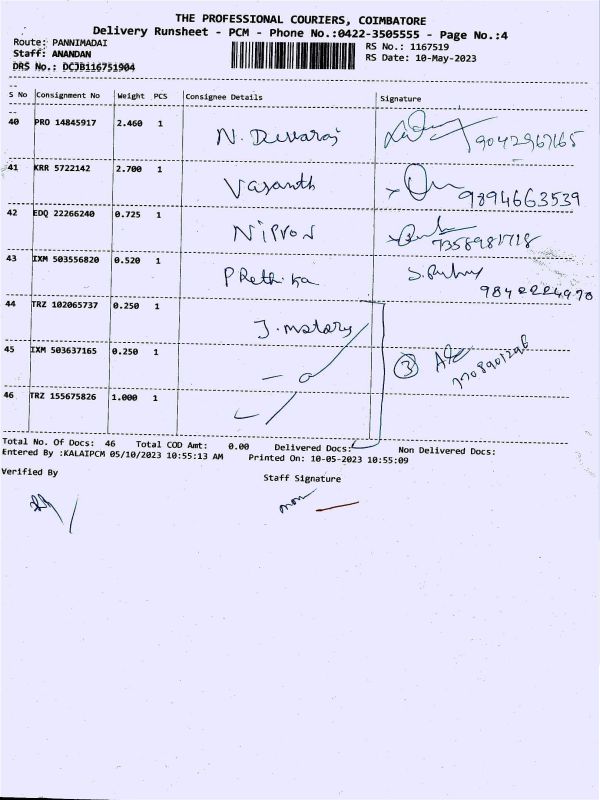 THE PROFESSIONAL COURIERS, COIMBATORE
Delivery Runsheet - PCM - Phone No.:0422-3505555 - Page No.:4
Route: PANNIMADAI
RS No.: 1167519
Staff: ANANDAN
RS Date: 10-May-2023
DRS No.: DCJB116751904
S No Consignment No Weight PCS Consignee Details Signature
40 PRO 14845917 2.460 1 N. Devaraj 9042967165
41 KRR 5722142 2.700 1 Vasanth 9894663539
42 EDQ 22266240 0.725 1 Nipron 7358981718
43 IXM 503556820 0.520 1 Prethika
44 TRZ 102065737 0.250 1
45 IXM 503637165 0.250 1 3
46 TRZ 155675826 1.000 1
Total No. Of Docs: 46 Total COD Amt: 0.00 Delivered Docs: Non Delivered Docs:
Entered By :KALAIPCM 05/10/2023 10:55:13 AM Printed On: 10-05-2023 10:55:09
Verified By
Staff Signature